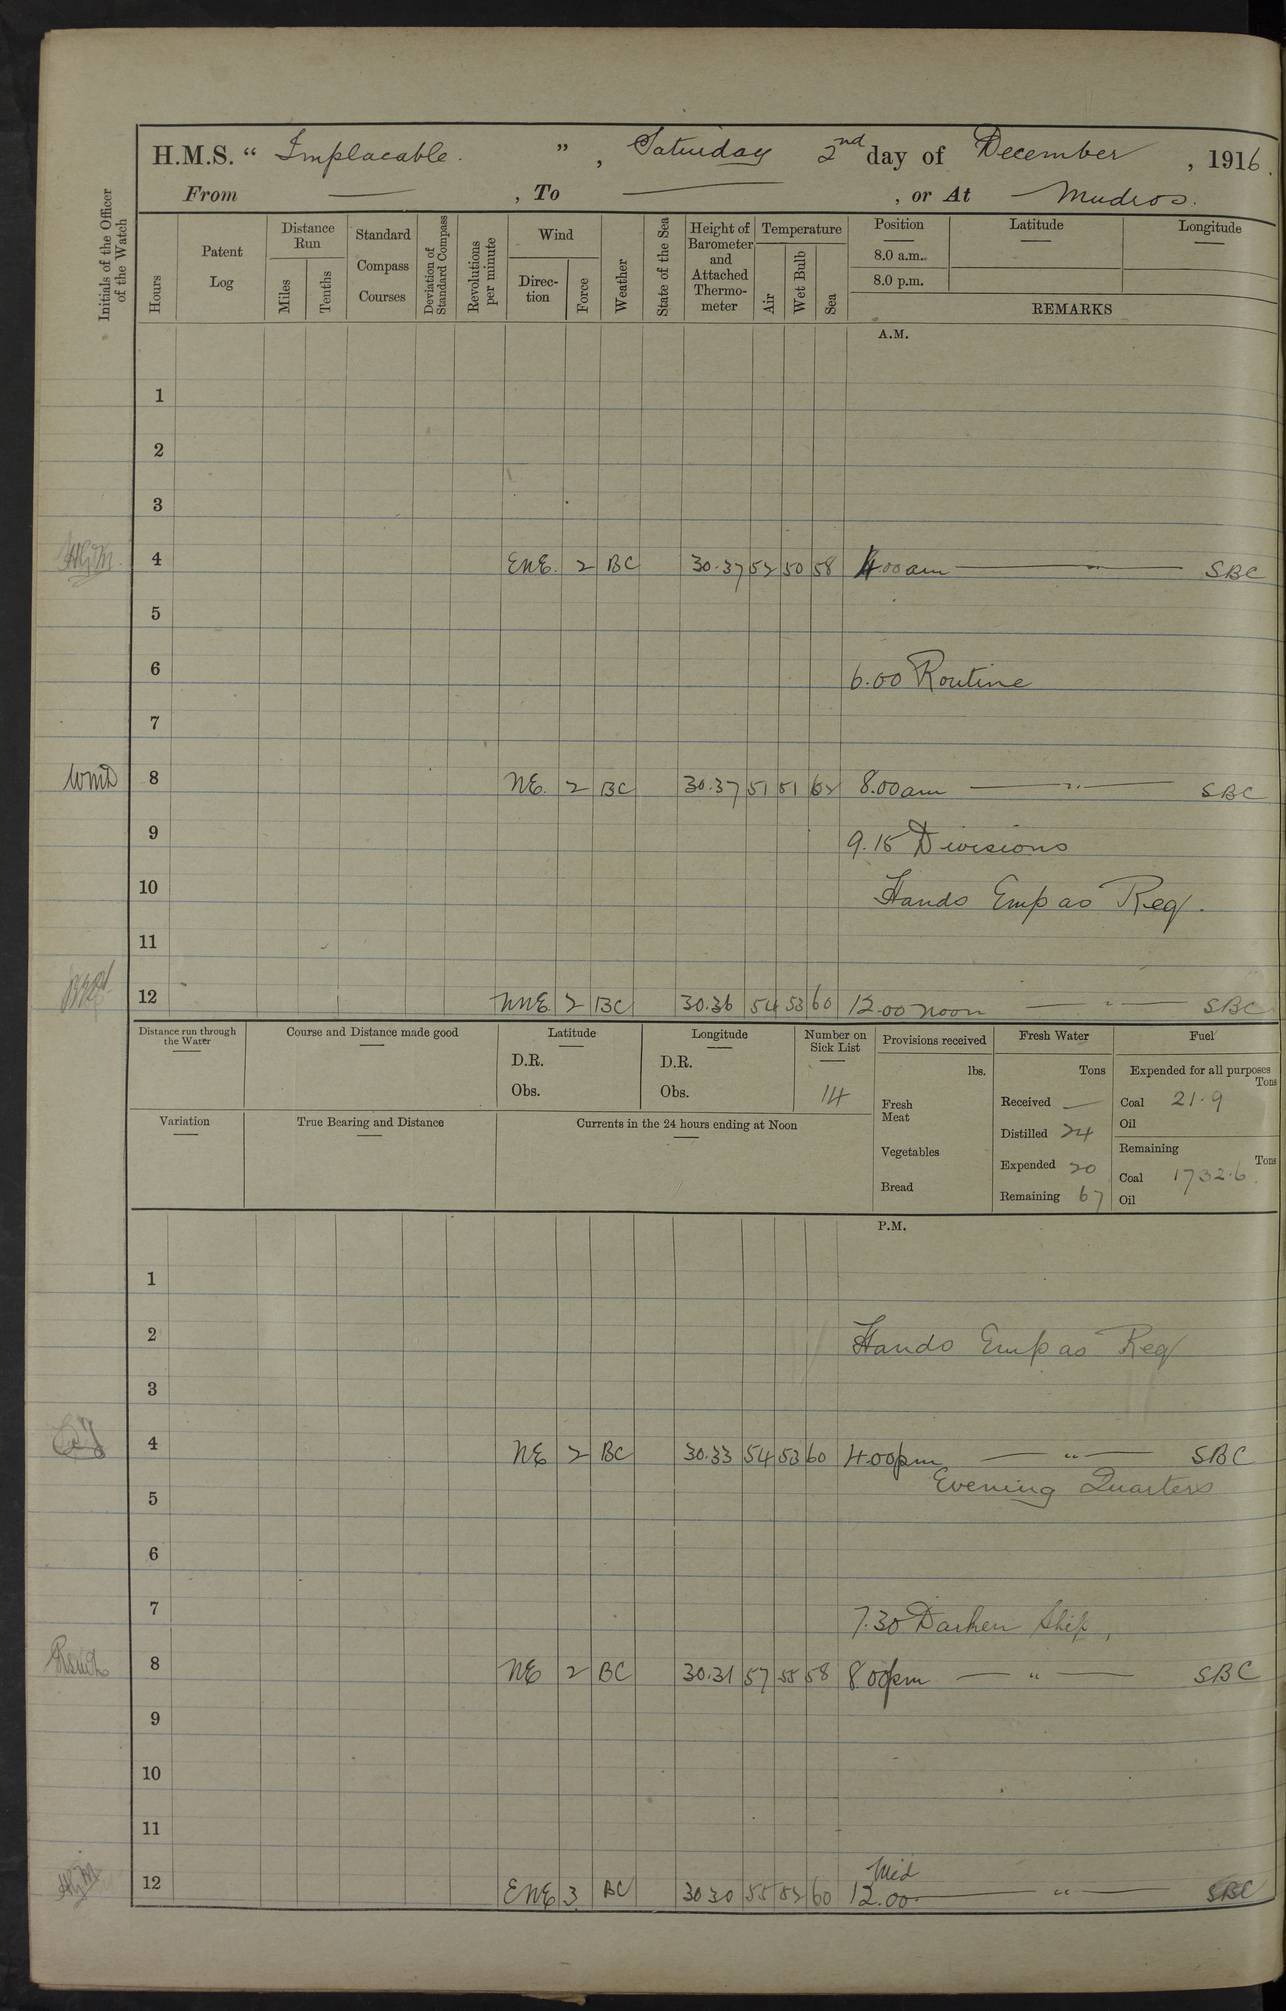 H.M.S. “ Implacable. ” , Saturday 2nd day of December , 1916.
From — , To — , or At Mudros.
Initials of the Officer of the Watch
Hours
Patent Log
Distance Run
Miles
Tenths
Standard Compass Courses
Deviation of Standard Compass
Revolutions per minute
Wind
Direc-tion
Force
Weather
State of the Sea
Height of Barometer and Attached Thermo-meter
Temperature
Air
Wet Bulb
Sea
Position
8.0 a.m.
8.0 p.m.
Latitude
Longitude
REMARKS
A.M.
1
2
3
4 ENE. 2 BC 30.37 52 50 58 4.00am — " — SBC
5
6 6.00 Routine
7
8 NE. 2 BC 30.37 51 51 62 8.00am — " — SBC
9 9.15 Divisions
10 Hands Emp as Req.
11
12 NNE 2 BC 30.36 54 53 60 12.00 noon — " — SBC
Distance run through the Water
Course and Distance made good
Latitude
D.R.
Obs.
Longitude
D.R.
Obs.
Number on Sick List
14
Provisions received
lbs.
Fresh Meat
Vegetables
Bread
Fresh Water
Tons
Received —
Distilled 24
Expended 20
Remaining 67
Fuel
Expended for all purposes
Tons
Coal 21.9
Oil
Remaining
Tons
Coal 1732.6
Oil
Variation
True Bearing and Distance
Currents in the 24 hours ending at Noon
P.M.
1
2 Hands Emp as Req
3
4 NE 2 BC 30.33 54 53 60 4.00pm — " — SBC
Evening Quarters
5
6
7 7.30 Darken Ship,
8 NE 2 BC 30.31 57 55 58 8.00pm — " — SBC
9
10
11
Mid
12 ENE 3 BC 30 30 55 52 60 12.00 — " — SBC